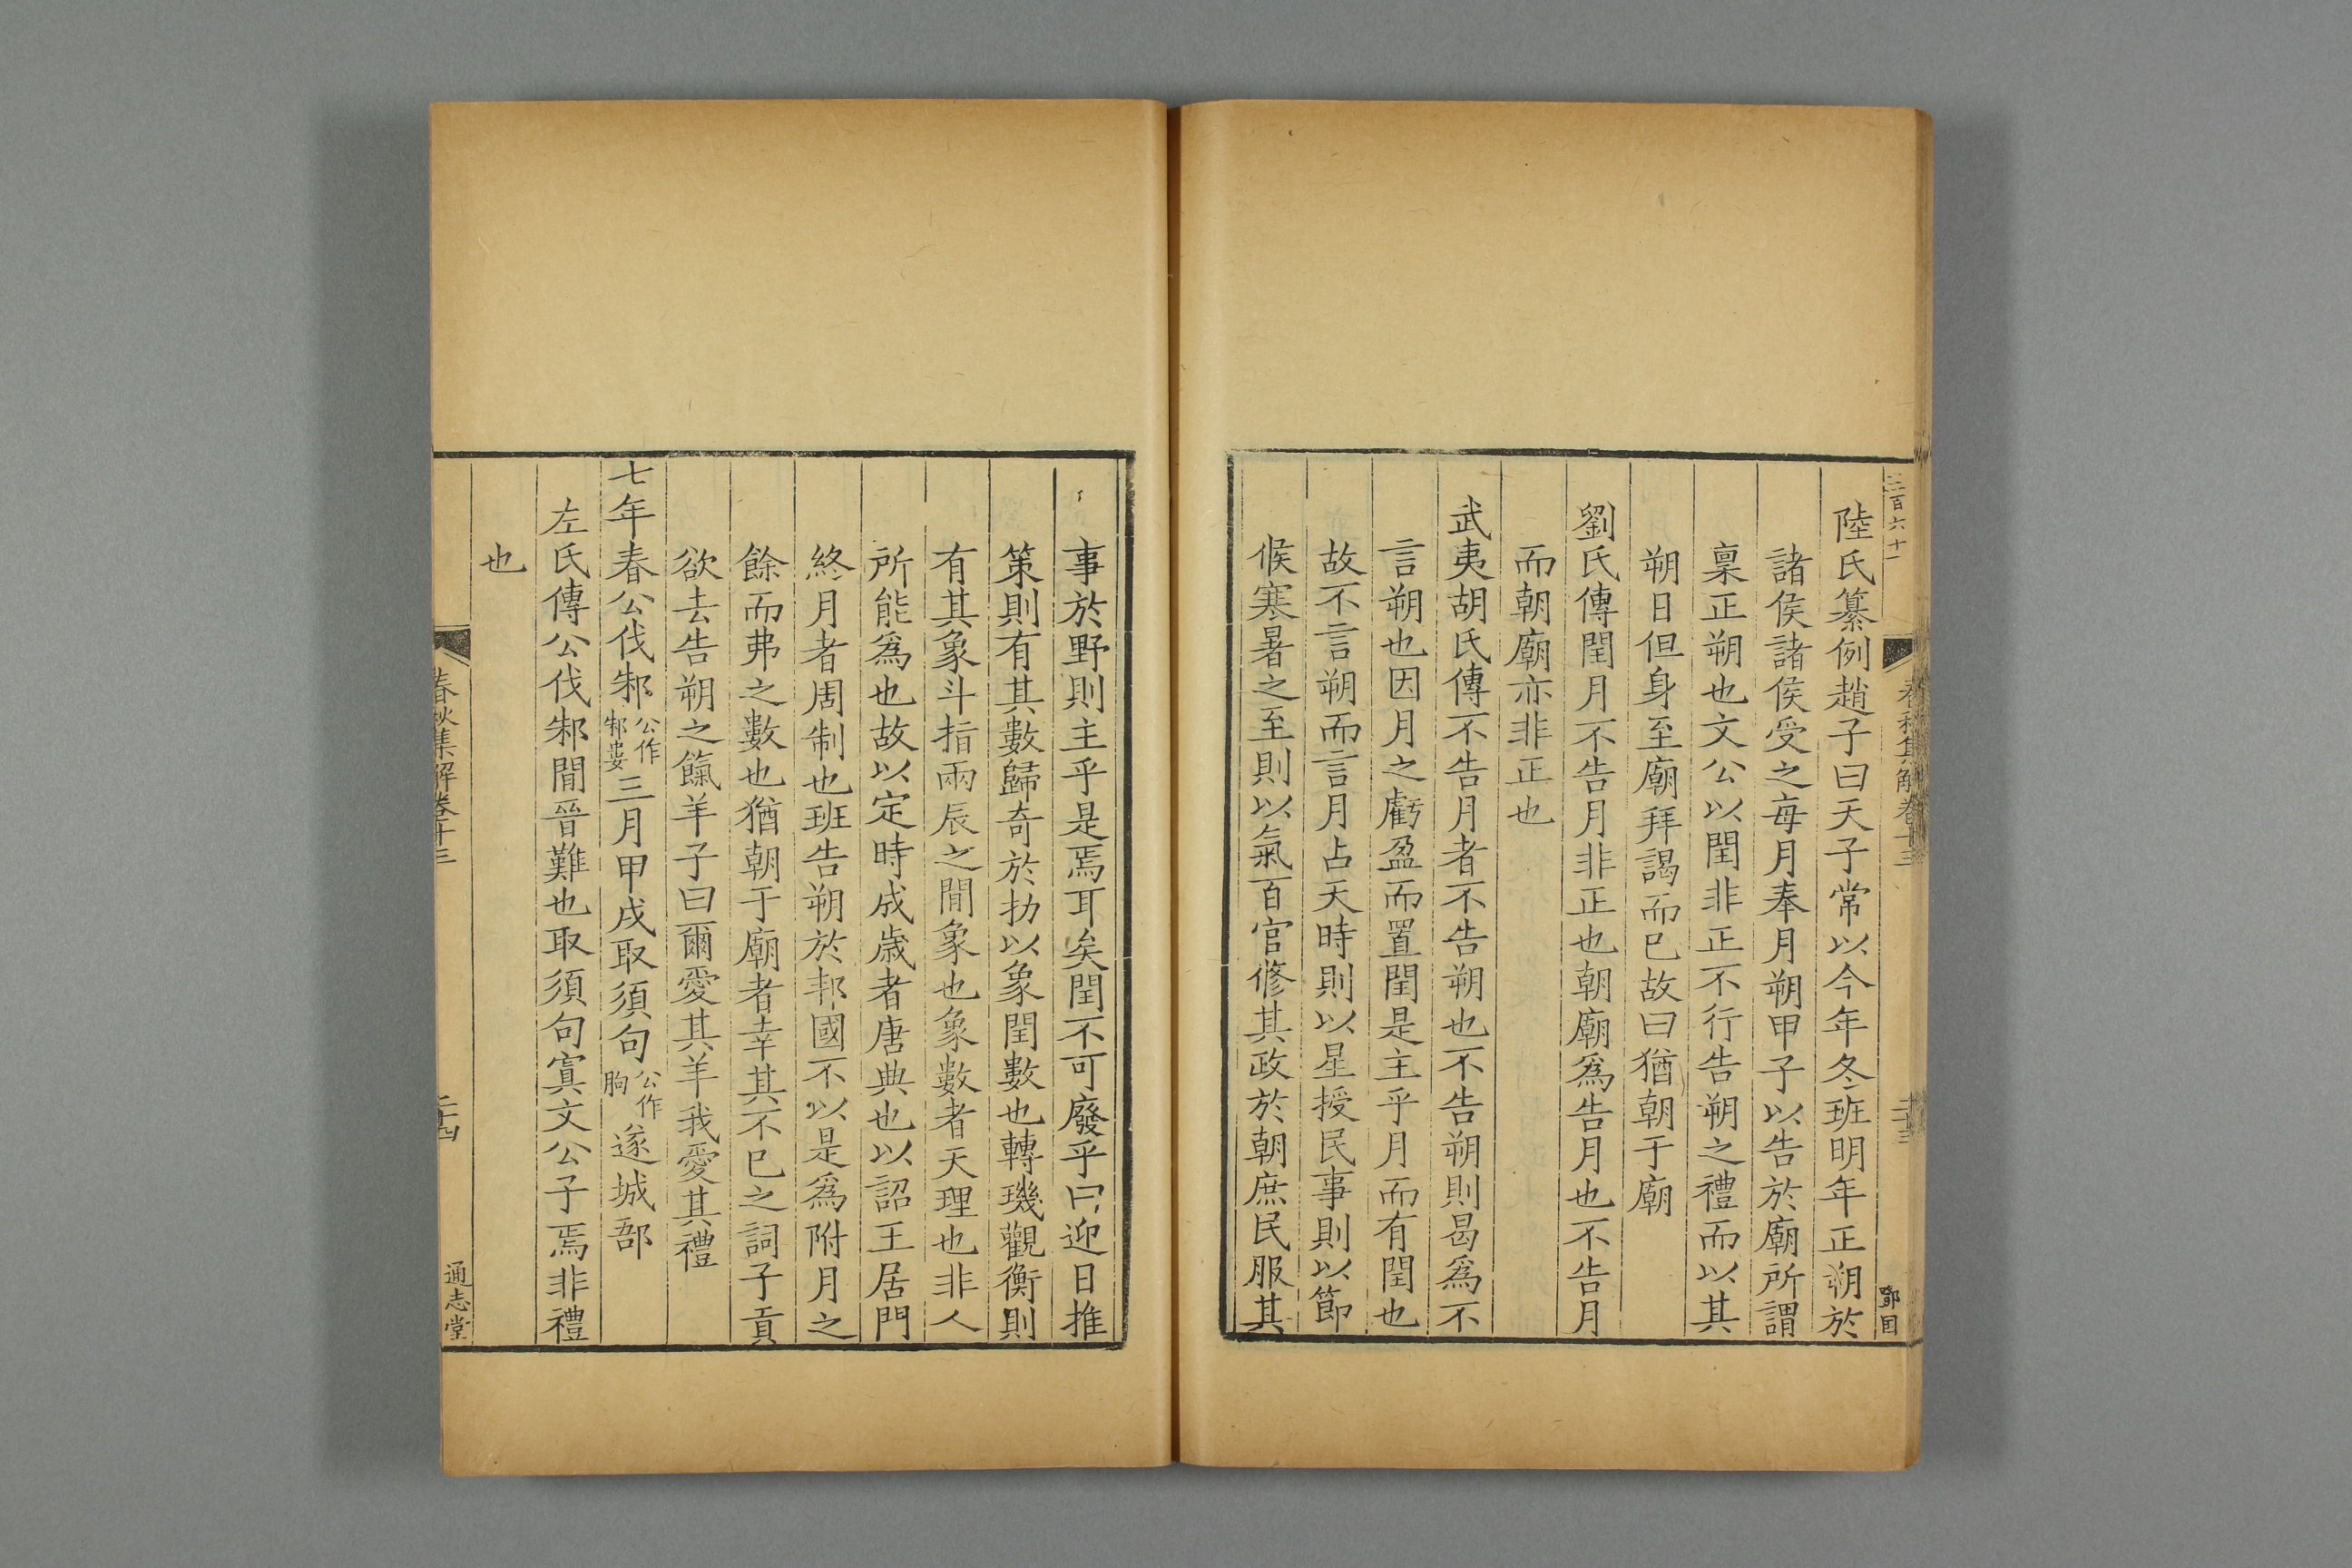 三百六十一
春秋集解卷十三
二十三
陸氏纂例趙子曰天子常以今年冬班明年正朔於
諸侯諸侯受之每月奉月朔甲子以告於廟所謂
稟正朔也文公以閏非正不行告朔之禮而以其
朔日但身至廟拜謁而已故曰猶朝于廟
劉氏傳閏月不告月非正也朝廟為告月也不告月
而朝廟亦非正也
武夷胡氏傳不告月者不告朔也不告朔則曷為不
言朔也因月之虧盈而置閏是主乎月而有閏也
故不言朔而言月占天時則以星授民事則以節
候寒暑之至則以氣百官修其政於朝庶民服其
事於野則主乎是焉耳矣閏不可廢乎曰迎日推
策則有其數歸奇於扐以象閏數也轉璣觀衡則
有其象斗指兩辰之間象也象數者天理也非人
所能為也故以定時成歲者唐典也以詔王居門
終月者周制也班告朔於邦國不以是為附月之
餘而弗之數也猶朝于廟者幸其不已之詞子貢
欲去告朔之餼羊子曰爾愛其羊我愛其禮
七年春公伐邾公作邾婁三月甲戌取須句公作朐遂城郚
左氏傳公伐邾間晉難也取須句寘文公子焉非禮
也
春秋集解卷十三
二十四
通志堂